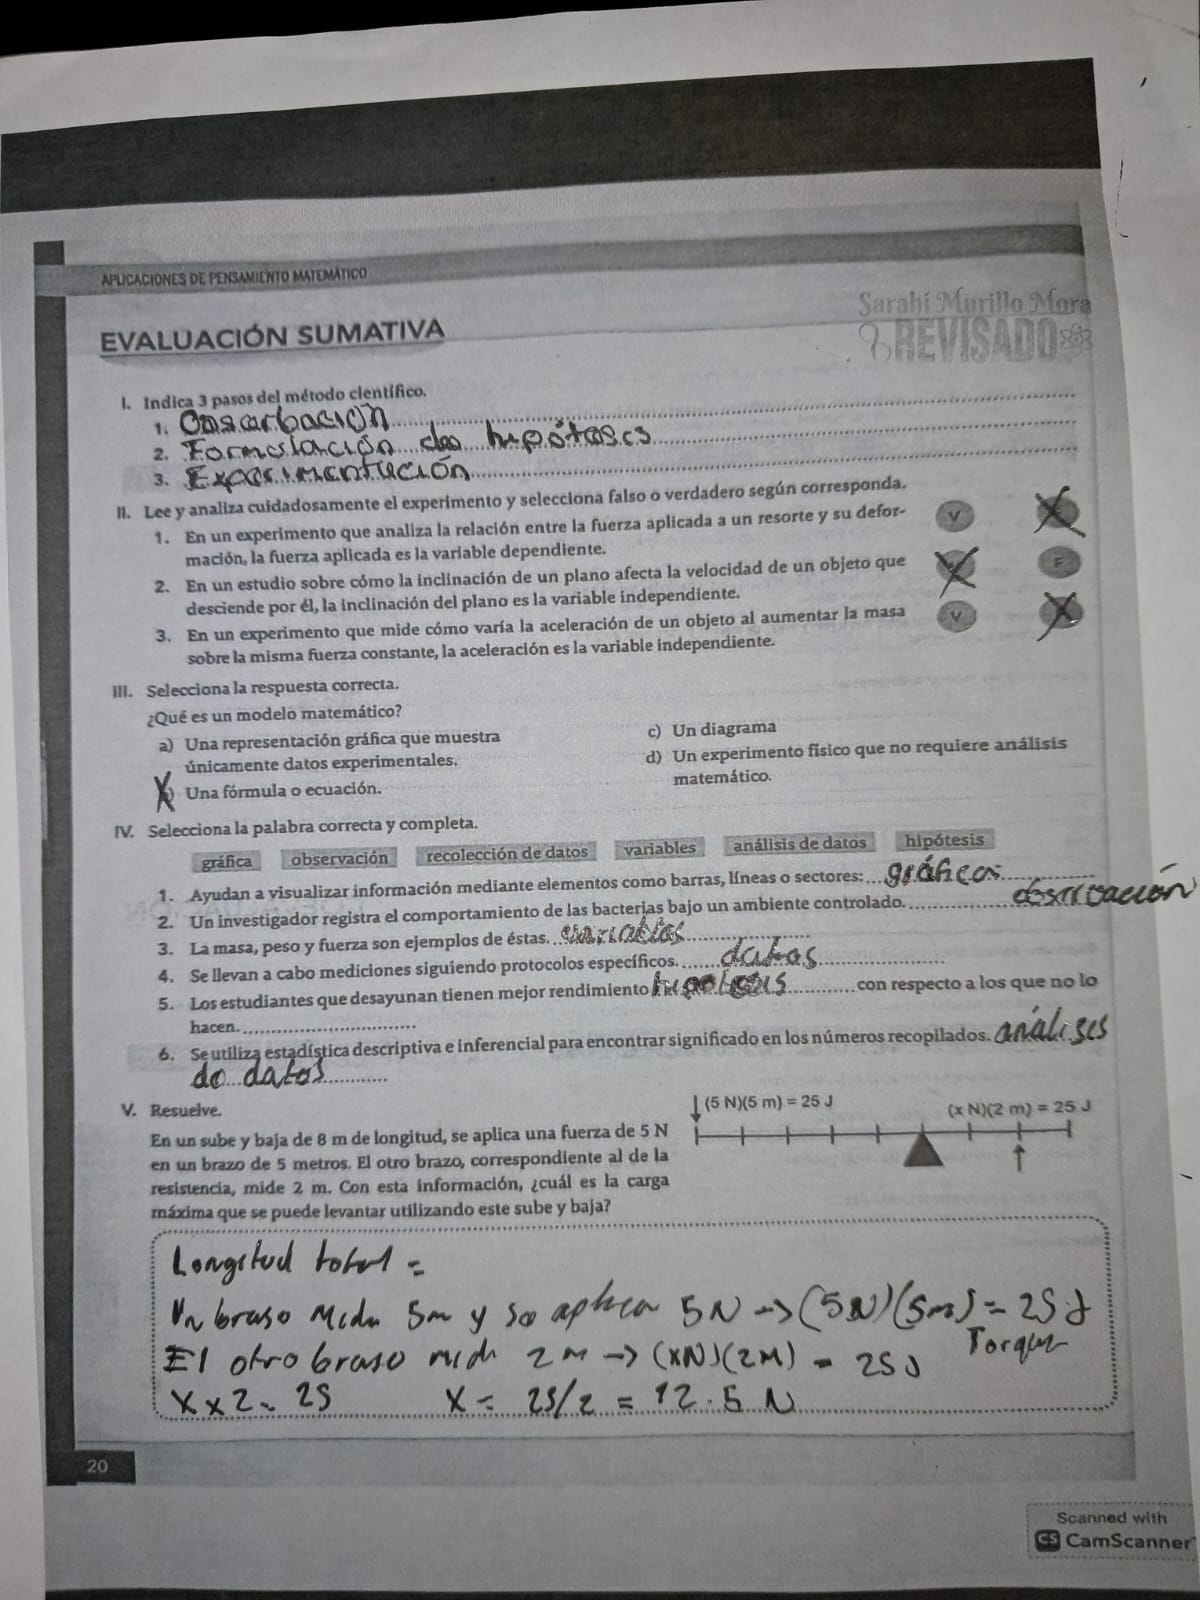 APLICACIONES DE PENSAMIENTO MATEMÁTICO
Sarahí Murillo Mora
EVALUACIÓN SUMATIVA
REVISADO
I. Indica 3 pasos del método científico.
1. Obsarbación
2. Formulación de hipótesis
3. Experimentación
II. Lee y analiza cuidadosamente el experimento y selecciona falso o verdadero según corresponda.
1. En un experimento que analiza la relación entre la fuerza aplicada a un resorte y su defor- V
mación, la fuerza aplicada es la variable dependiente.
2. En un estudio sobre cómo la inclinación de un plano afecta la velocidad de un objeto que F
desciende por él, la inclinación del plano es la variable independiente.
3. En un experimento que mide cómo varía la aceleración de un objeto al aumentar la masa V
sobre la misma fuerza constante, la aceleración es la variable independiente.
III. Selecciona la respuesta correcta.
¿Qué es un modelo matemático?
a) Una representación gráfica que muestra
únicamente datos experimentales.
Una fórmula o ecuación.
c) Un diagrama
d) Un experimento físico que no requiere análisis
matemático.
IV. Selecciona la palabra correcta y completa.
gráfica observación recolección de datos variables análisis de datos hipótesis
1. Ayudan a visualizar información mediante elementos como barras, líneas o sectores: gráficas
2. Un investigador registra el comportamiento de las bacterias bajo un ambiente controlado. observación
3. La masa, peso y fuerza son ejemplos de éstas. variables
4. Se llevan a cabo mediciones siguiendo protocolos específicos. datos
5. Los estudiantes que desayunan tienen mejor rendimiento hipotesis con respecto a los que no lo
hacen.
6. Se utiliza estadística descriptiva e inferencial para encontrar significado en los números recopilados. análisis
de datos
V. Resuelve.
En un sube y baja de 8 m de longitud, se aplica una fuerza de 5 N
en un brazo de 5 metros. El otro brazo, correspondiente al de la
resistencia, mide 2 m. Con esta información, ¿cuál es la carga
máxima que se puede levantar utilizando este sube y baja?
(5 N)(5 m) = 25 J
(x N)(2 m) = 25 J
Longitud total =
Un braso mide 5m y se aplica 5N → (5N)(5m) = 25 J
Torque
El otro braso mide 2m → (xN)(2M) = 25 J
X x 2 = 25 X = 25/2 = 12.5 N
20
Scanned with
CS CamScanner